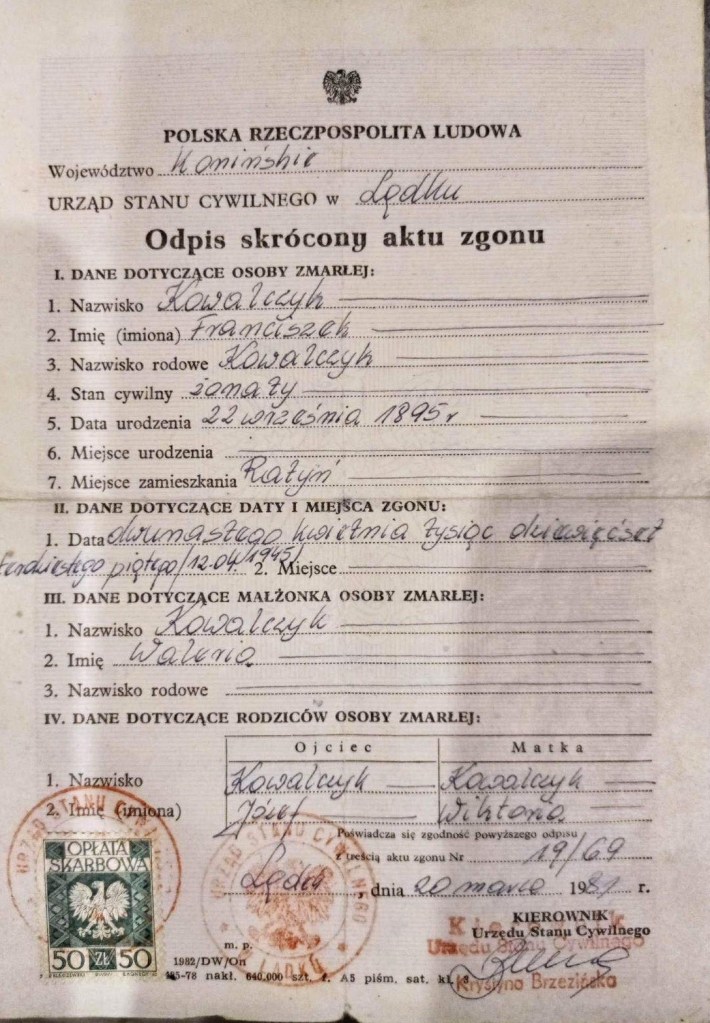 POLSKA RZECZPOSPOLITA LUDOWA
Województwo Konińskie
URZĄD STANU CYWILNEGO w Lądku
Odpis skrócony aktu zgonu
I. DANE DOTYCZĄCE OSOBY ZMARŁEJ:
1. Nazwisko Kowalczyk
2. Imię (imiona) Franciszek
3. Nazwisko rodowe Kowalczyk
4. Stan cywilny żonaty
5. Data urodzenia 22 września 1895 r
6. Miejsce urodzenia
7. Miejsce zamieszkania Ratyń
II. DANE DOTYCZĄCE DATY I MIEJSCA ZGONU:
1. Data dwunastego kwietnia tysiąc dziewięćset
piątego /12.04.1945/ 2. Miejsce
III. DANE DOTYCZĄCE MAŁŻONKA OSOBY ZMARŁEJ:
1. Nazwisko Kowalczyk
2. Imię Waleria
3. Nazwisko rodowe
IV. DANE DOTYCZĄCE RODZICÓW OSOBY ZMARŁEJ:
Ojciec Matka
1. Nazwisko Kowalczyk Kowalczyk
2. Imię (imiona) Józef Wiktoria
Poświadcza się zgodność powyższego odpisu
z treścią aktu zgonu Nr 19/69
Lądek, dnia 20 marca 1981 r.
KIEROWNIK
Urzędu Stanu Cywilnego
Kierownik
Urzędu Stanu Cywilnego
Krystyna Brzezińska
URZĄD STANU CYWILNEGO
OPŁATA
SKARBOWA
50 ZŁ 50
URZĄD STANU CYWILNEGO
W LĄDKU
m. p.
1982/DW/On
nakł. 640.000 szt. f. A5 piśm. sat. kl.